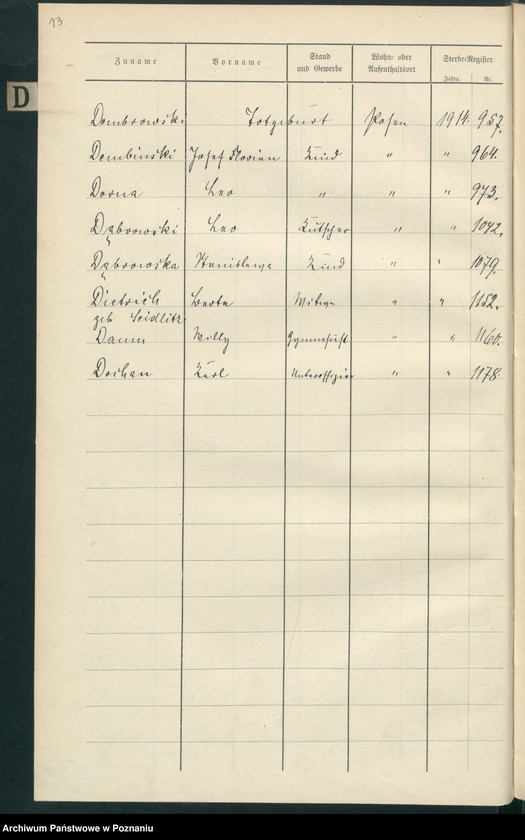 13
D
Zuname Vorname Stand und Gewerbe Wohn- oder Aufenthaltsort Sterbe-Register
Jahrg. Nr.
Dombrowski Totgeburt Posen 1914. 957.
Dembinski Josef Florian Kind " " 964.
Dorna Leo " " " 973.
Dąbrowski Leo Kutscher " " 1042.
Dąbrowska Stanislawa Kind " " 1079.
Dietrich Berta Witwe " " 1152.
geb Seidlitz
Damm Willy Gymnasiast " " 1160.
Dochan Karl Unteroffizier " " 1178
Archiwum Państwowe w Poznaniu